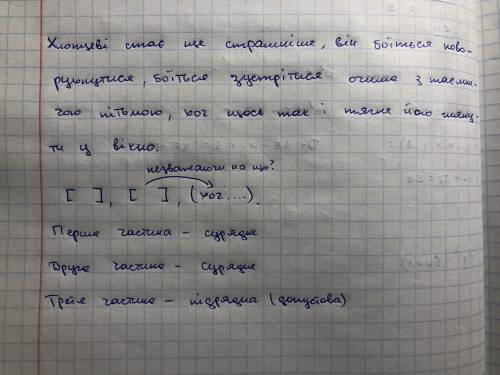 Хлопцеві стає ще страшніше, він боїться пово-
рухнутися, боїться зустрітися очима з таємни-
чою пітьмою, хоч щось так і тягне його гляну-
ти у вікно.
незважаючи на що?
[ ], [ ], (хоч....).
Перша частина - сурядна
Друга частина - Сурядна
Третя частина - підрядна (допустова)